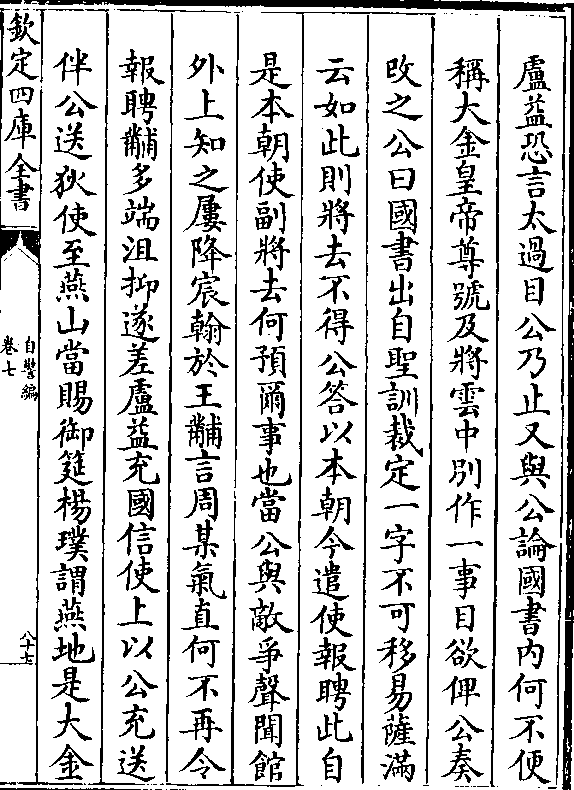 盧益恐言太過目公乃止又與公論國書内何不便
稱大金皇帝尊號及將雲中别作一事目欲俾公奏
改之公曰國書出自聖訓裁定一字不可移易薩滿
云如此則將去不得公答以本朝今遣使報聘此自
是本朝使副將去何預爾事也當公與敵爭聲聞館
外上知之屢降宸翰於王黼言周某氣直何不再令
報聘黼多端沮抑遂差盧益充國信使上以公充送
伴公送狄使至燕山當賜御筵楊璞謂燕地是大金
欽定四庫全書
自警編
卷七
八十七